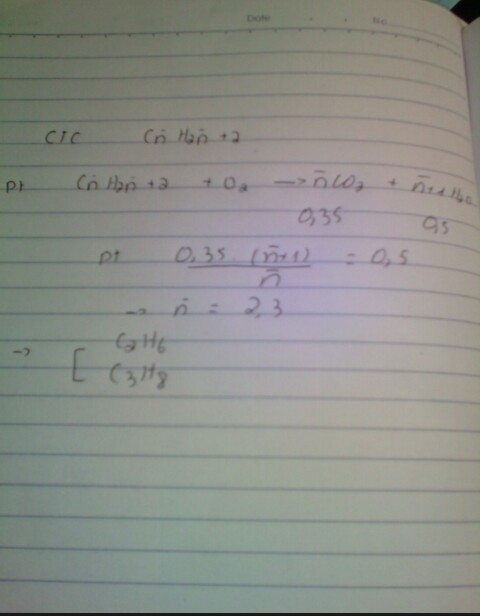 Date No
CTC Cn̄ H2n̄ +2
pt Cn̄ H2n̄ +2 + O2 → n̄CO2 + n̄+1 H2O
0,35 0,5
pt 0,35 (n̄+1) / n̄ = 0,5
→ n̄ = 2,3
→ [ C2H6
C3H8